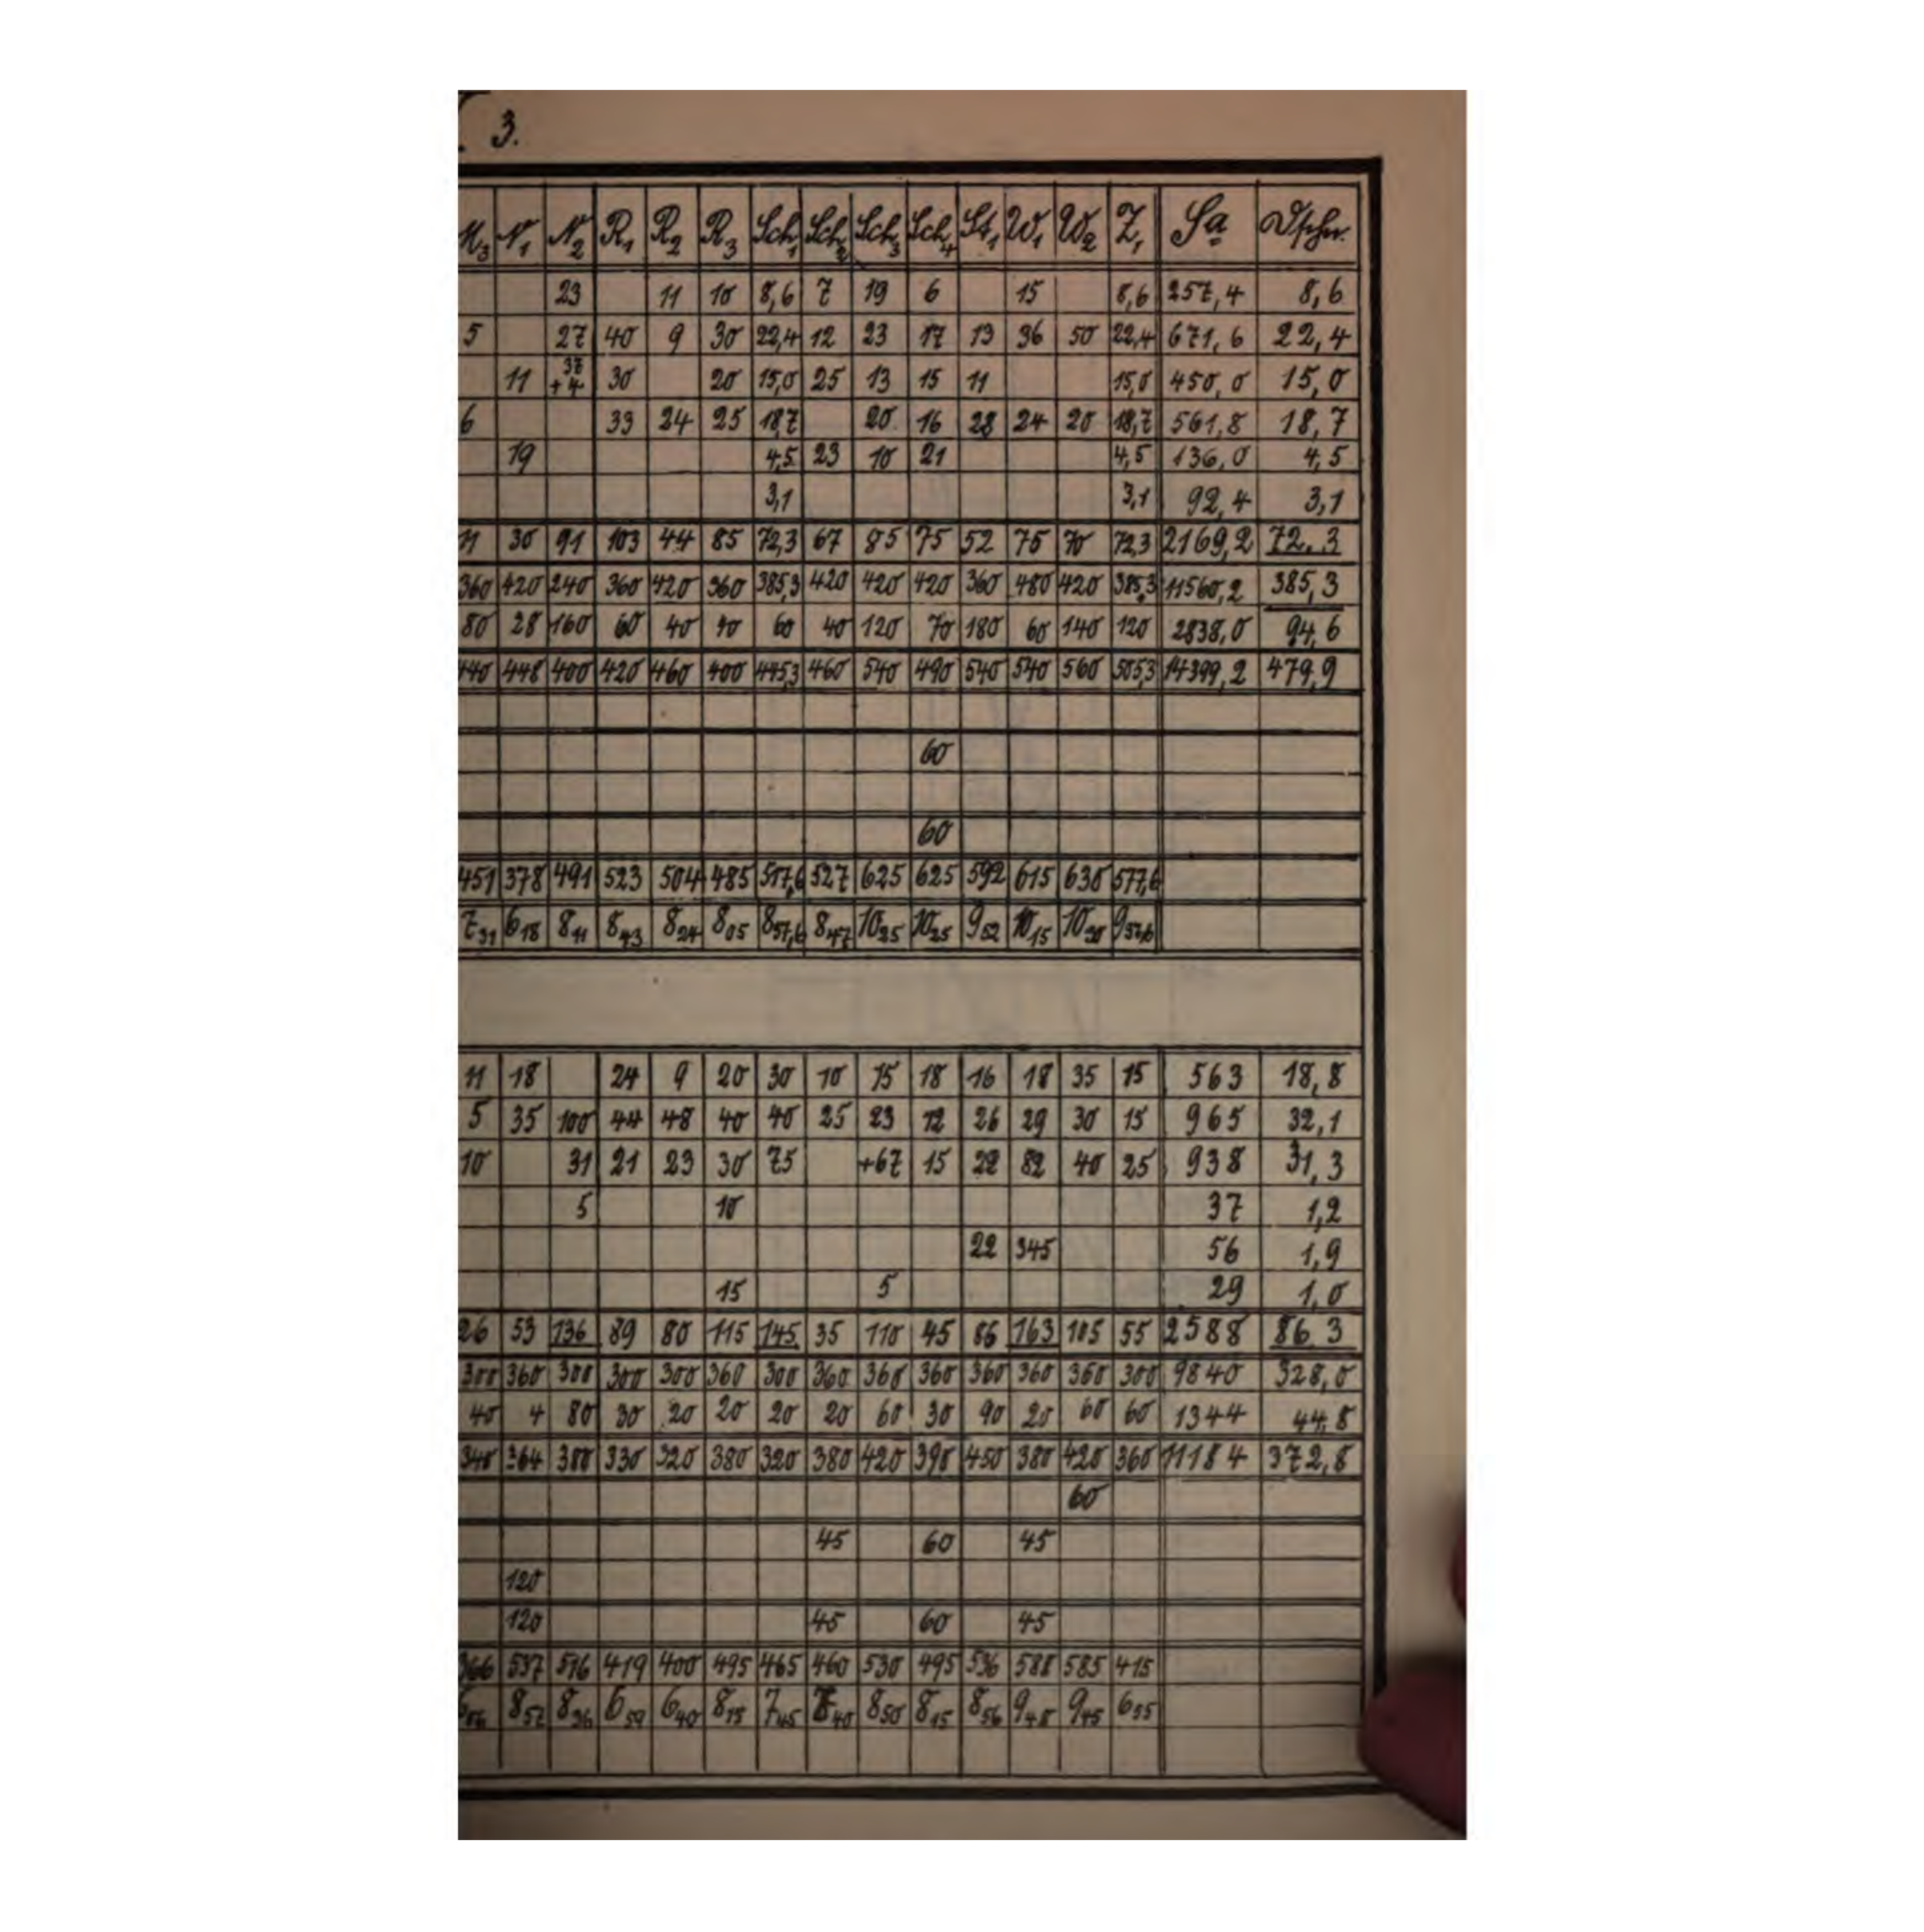 3.
M3 N1 N2 R1 R2 R3 Sch1 Sch2 Sch3 Sch4 St1 W1 W2 Z1 Sa Dschn.
23 11 10 8,6 7 19 6 15 8,6 257,4 8,6
5 27 40 9 30 22,4 12 23 17 13 36 50 22,4 671,6 22,4
11 37 +4 30 20 15,0 25 13 15 11 15,0 450,0 15,0
6 33 24 25 18,7 20 16 28 24 20 18,7 561,8 18,7
19 4,5 23 10 21 4,5 136,0 4,5
3,1 3,1 92,4 3,1
11 30 91 103 44 85 72,3 67 85 75 52 75 70 72,3 2169,2 72.3
360 420 240 360 420 360 385,3 420 420 420 360 480 420 385,3 11560,2 385,3
80 28 160 60 40 40 60 40 120 70 180 60 140 120 2838,0 94,6
440 448 400 420 460 400 445,3 460 540 490 540 540 560 505,3 14399,2 479,9
60
60
451 378 491 523 504 485 517,6 527 625 625 592 615 630 577,6
7 31 6 18 8 11 8 43 8 24 8 05 8 37,6 8 47 10 25 10 25 9 52 10 15 10 30 9 37,6
11 18 24 9 20 30 10 15 18 16 18 35 15 563 18,8
5 35 100 44 48 40 40 25 23 12 26 29 30 15 965 32,1
10 31 21 23 30 75 +67 15 22 82 40 25 938 31,3
5 10 37 1,2
22 345 56 1,9
15 5 29 1,0
26 53 136 89 80 115 145 35 110 45 86 163 105 55 2588 86.3
300 360 300 300 300 360 300 360 360 360 360 360 360 300 9840 328,0
40 4 80 30 20 20 20 20 60 30 90 20 60 60 1344 44,8
340 364 380 330 320 380 320 380 420 390 450 380 420 360 11184 372,8
60
45 60 45
120
120 45 60 45
366 537 516 419 400 495 465 460 530 495 536 588 585 415
6 06 8 57 8 36 6 59 6 40 8 15 7 45 7 40 8 50 8 15 8 56 9 48 9 45 6 55